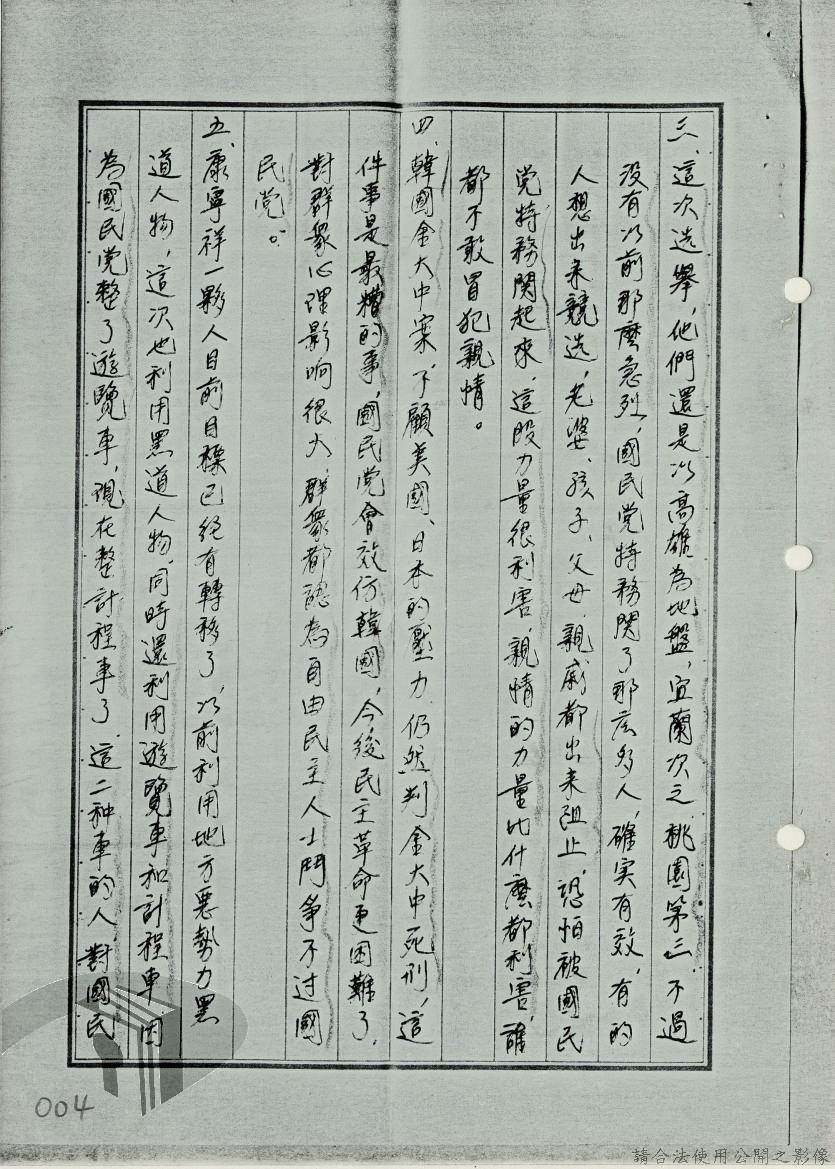 三、這次选举，他們還是以高雄為地盤，宜蘭次之，桃園第三，不過
没有以前那麼急烈，國民党特務関了那広多人，確实有效，有的
人想出来競选，老婆、孩子、父母、親戚都出来阻止，恐怕被國民
党特務関起來，這股力量很利害，親情的力量比什麼都利害，誰
都不敢冒犯親情。
四、韓國金大中案，不顧美國、日本的壓力，仍然判金大中死刑，這
件事是最糟的事，國民党會效仿韓國，今後民主革命更困難了，
對群衆心理影响很大，群衆都認為自由民主人士鬥爭不过國
民党。
五、康寧祥一夥人目前目標已經有轉移了，以前利用地方惡勢力黑
道人物，這次也利用黑道人物，同時還利用遊覽車和計程車，因
為國民党整了遊覽車，現在整計程車了，這二种車的人，對國民
004
請合法使用公開之影像